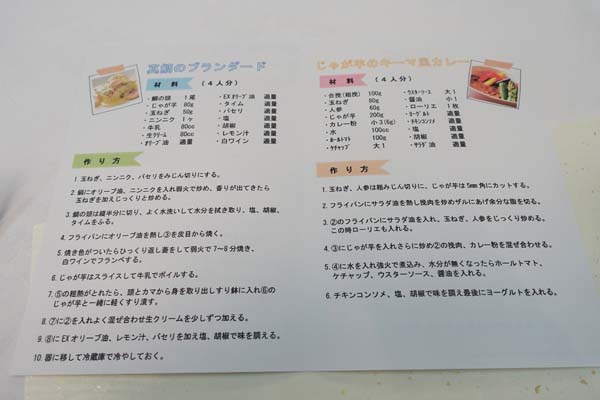 真鯛のブランダード
材料 （４人分）
・鯛の頭 １尾
・じゃが芋 80g
・玉ねぎ 50g
・ニンニク １ヶ
・牛乳 80cc
・生クリーム 80cc
・オリーブ油 適量
・EXオリーブ油 適量
・タイム 適量
・パセリ 適量
・塩 適量
・胡椒 適量
・レモン汁 適量
・白ワイン 適量
作り方
1. 玉ねぎ、ニンニク、パセリをみじん切りにする。
2. 鍋にオリーブ油、ニンニクを入れ弱火で炒め、香りが出てきたら
玉ねぎを加えじっくりと炒める。
3. 鯛の頭は縦半分に切り、よく水洗いして水分を拭き取り、塩、胡椒、
タイムをふる。
4. フライパンにオリーブ油を熱し③を皮目から焼く。
5. 焼き色がついたらひっくり返し蓋をして弱火で7～8分焼き、
白ワインでフランベする。
6. じゃが芋はスライスして牛乳でボイルする。
7. ⑤の粗熱がとれたら、頭とカマから身を取り出しすり鉢に入れ⑥の
じゃが芋と一緒に軽くすり潰す。
8. ⑦に②を入れよく混ぜ合わせ生クリームを少しずつ加える。
9. ⑧にEXオリーブ油、レモン汁、パセリを加え塩、胡椒で味を調える。
10. 器に移して冷蔵庫で冷やしておく。
じゃが芋のキーマ風カレー
材料 （４人分）
・合挽(粗挽) 100g
・玉ねぎ 80g
・人参 60g
・じゃが芋 200g
・カレー粉 小３(6g)
・水 100cc
・ホールトマト 100g
・ケチャップ 大１
・ウスターソース 大１
・醤油 小１
・ローリエ １枚
・ヨーグルト 適量
・チキンコンソメ 適量
・塩 適量
・胡椒 適量
・サラダ油 適量
作り方
1. 玉ねぎ、人参は粗みじん切りに、じゃが芋は5mm角にカットする。
2. フライパンにサラダ油を熱し挽肉を炒めザルにあげ余分な脂を切る。
3. ②のフライパンにサラダ油を入れ、玉ねぎ、人参をじっくり炒める。
この時ローリエも入れる。
4. ③にじゃが芋を入れさらに炒め②の挽肉、カレー粉を混ぜ合わせる。
5. ④に水を入れ強火で煮込み、水分が無くなったらホールトマト、
ケチャップ、ウスターソース、醤油を入れる。
6. チキンコンソメ、塩、胡椒で味を調え最後にヨーグルトを入れる。